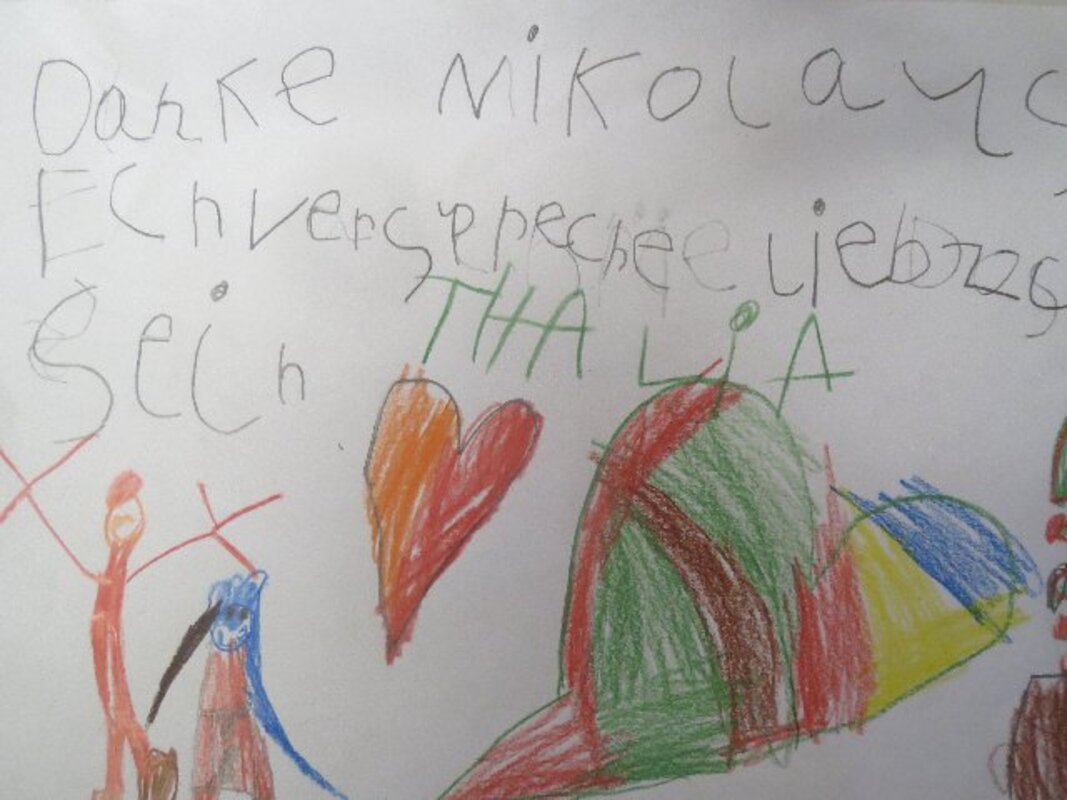 DanKe NiKolaus
Echverspreche
Sein
THALiA